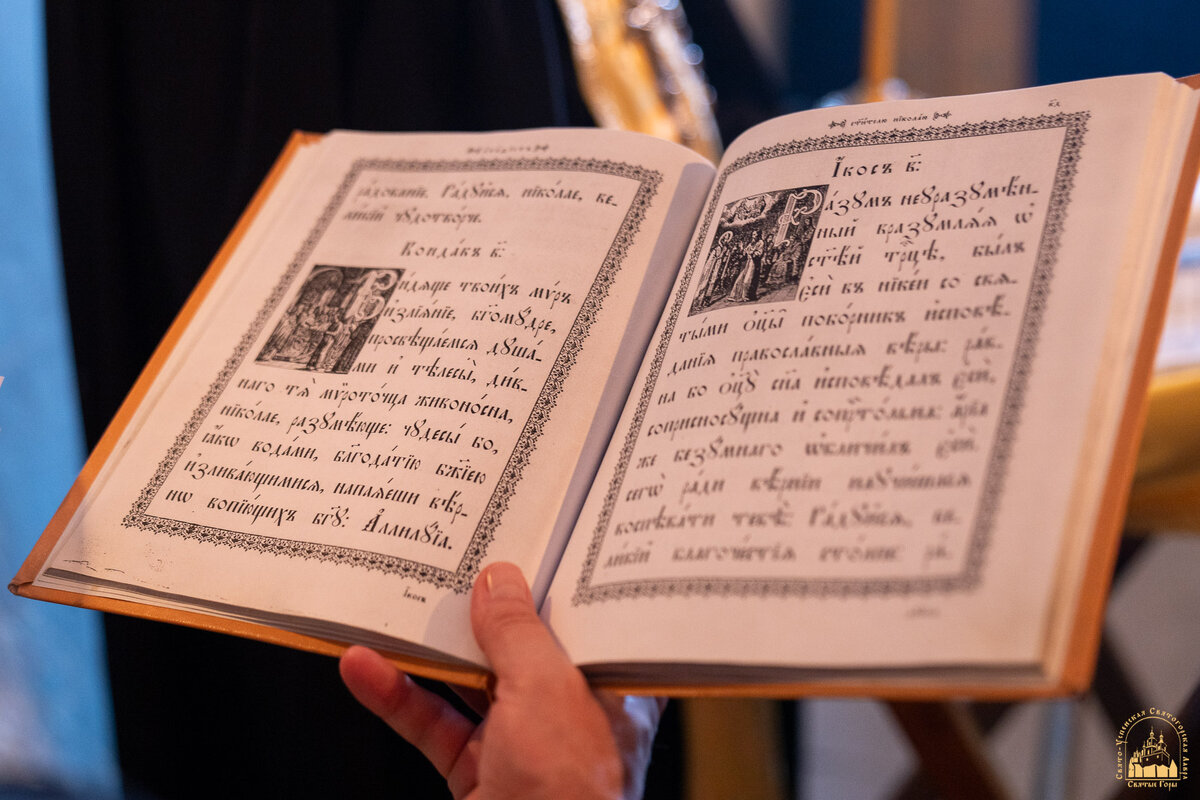 радованїе. Ра́дꙋйсѧ, нїко́лае, ве-
ли́кїй чꙋдотво́рче.
Конда́къ в҃:
Ви́дѧще твои́хъ мѵ́ръ
и҆злїѧ́нїе, бг҃омꙋ́дре,
просвѣща́емсѧ дꙋша́-
ми и҆ тѣлесы̀, ди́в-
наго тѧ̀ мѵрото́чца живоно́сна,
нїко́лае, разꙋмѣ́юще: чꙋдесы́ бо,
ꙗ҆́кѡ вода́ми, бл҃года́тїю бж҃їею
и҆злива́ющимисѧ, напаѧ́еши вѣ́р-
нѡ вопїю́щихъ бг҃ꙋ: А҆ллилꙋ́їа.
І҆́косъ
ст҃и́телю нїкола́ю
к҃д
І҆́косъ в҃:
Ра́зꙋмъ неꙋразꙋмѣ́н-
ный вразꙋмлѧ́ѧ ѡ҆
ст҃ѣ́й трⷪ҇цѣ, бы́лъ
є҆сѝ въ нїке́и со свѧ-
ты́ми ѻ҆ц҃ы̀ побо́рникъ и҆сповѣ́-
данїѧ правосла́вныѧ вѣ́ры: ра́в-
на бо ѻ҆ц҃ꙋ̀ сн҃а и҆сповѣ́далъ є҆сѝ,
соприсносꙋ́щна и҆ сопрⷭ҇то́льна: а҆́рїѧ
же безꙋ́мнаго ѡ҆бличи́лъ є҆сѝ.
сегѡ̀ ра́ди вѣ́рнїи наꙋчи́шасѧ
воспѣва́ти тебѣ̀: Ра́дꙋйсѧ, ве-
ли́кїй благоче́стїѧ сто́лпе: ра́-
Свято-Успенская Святогорская Лавра
Святые Горы